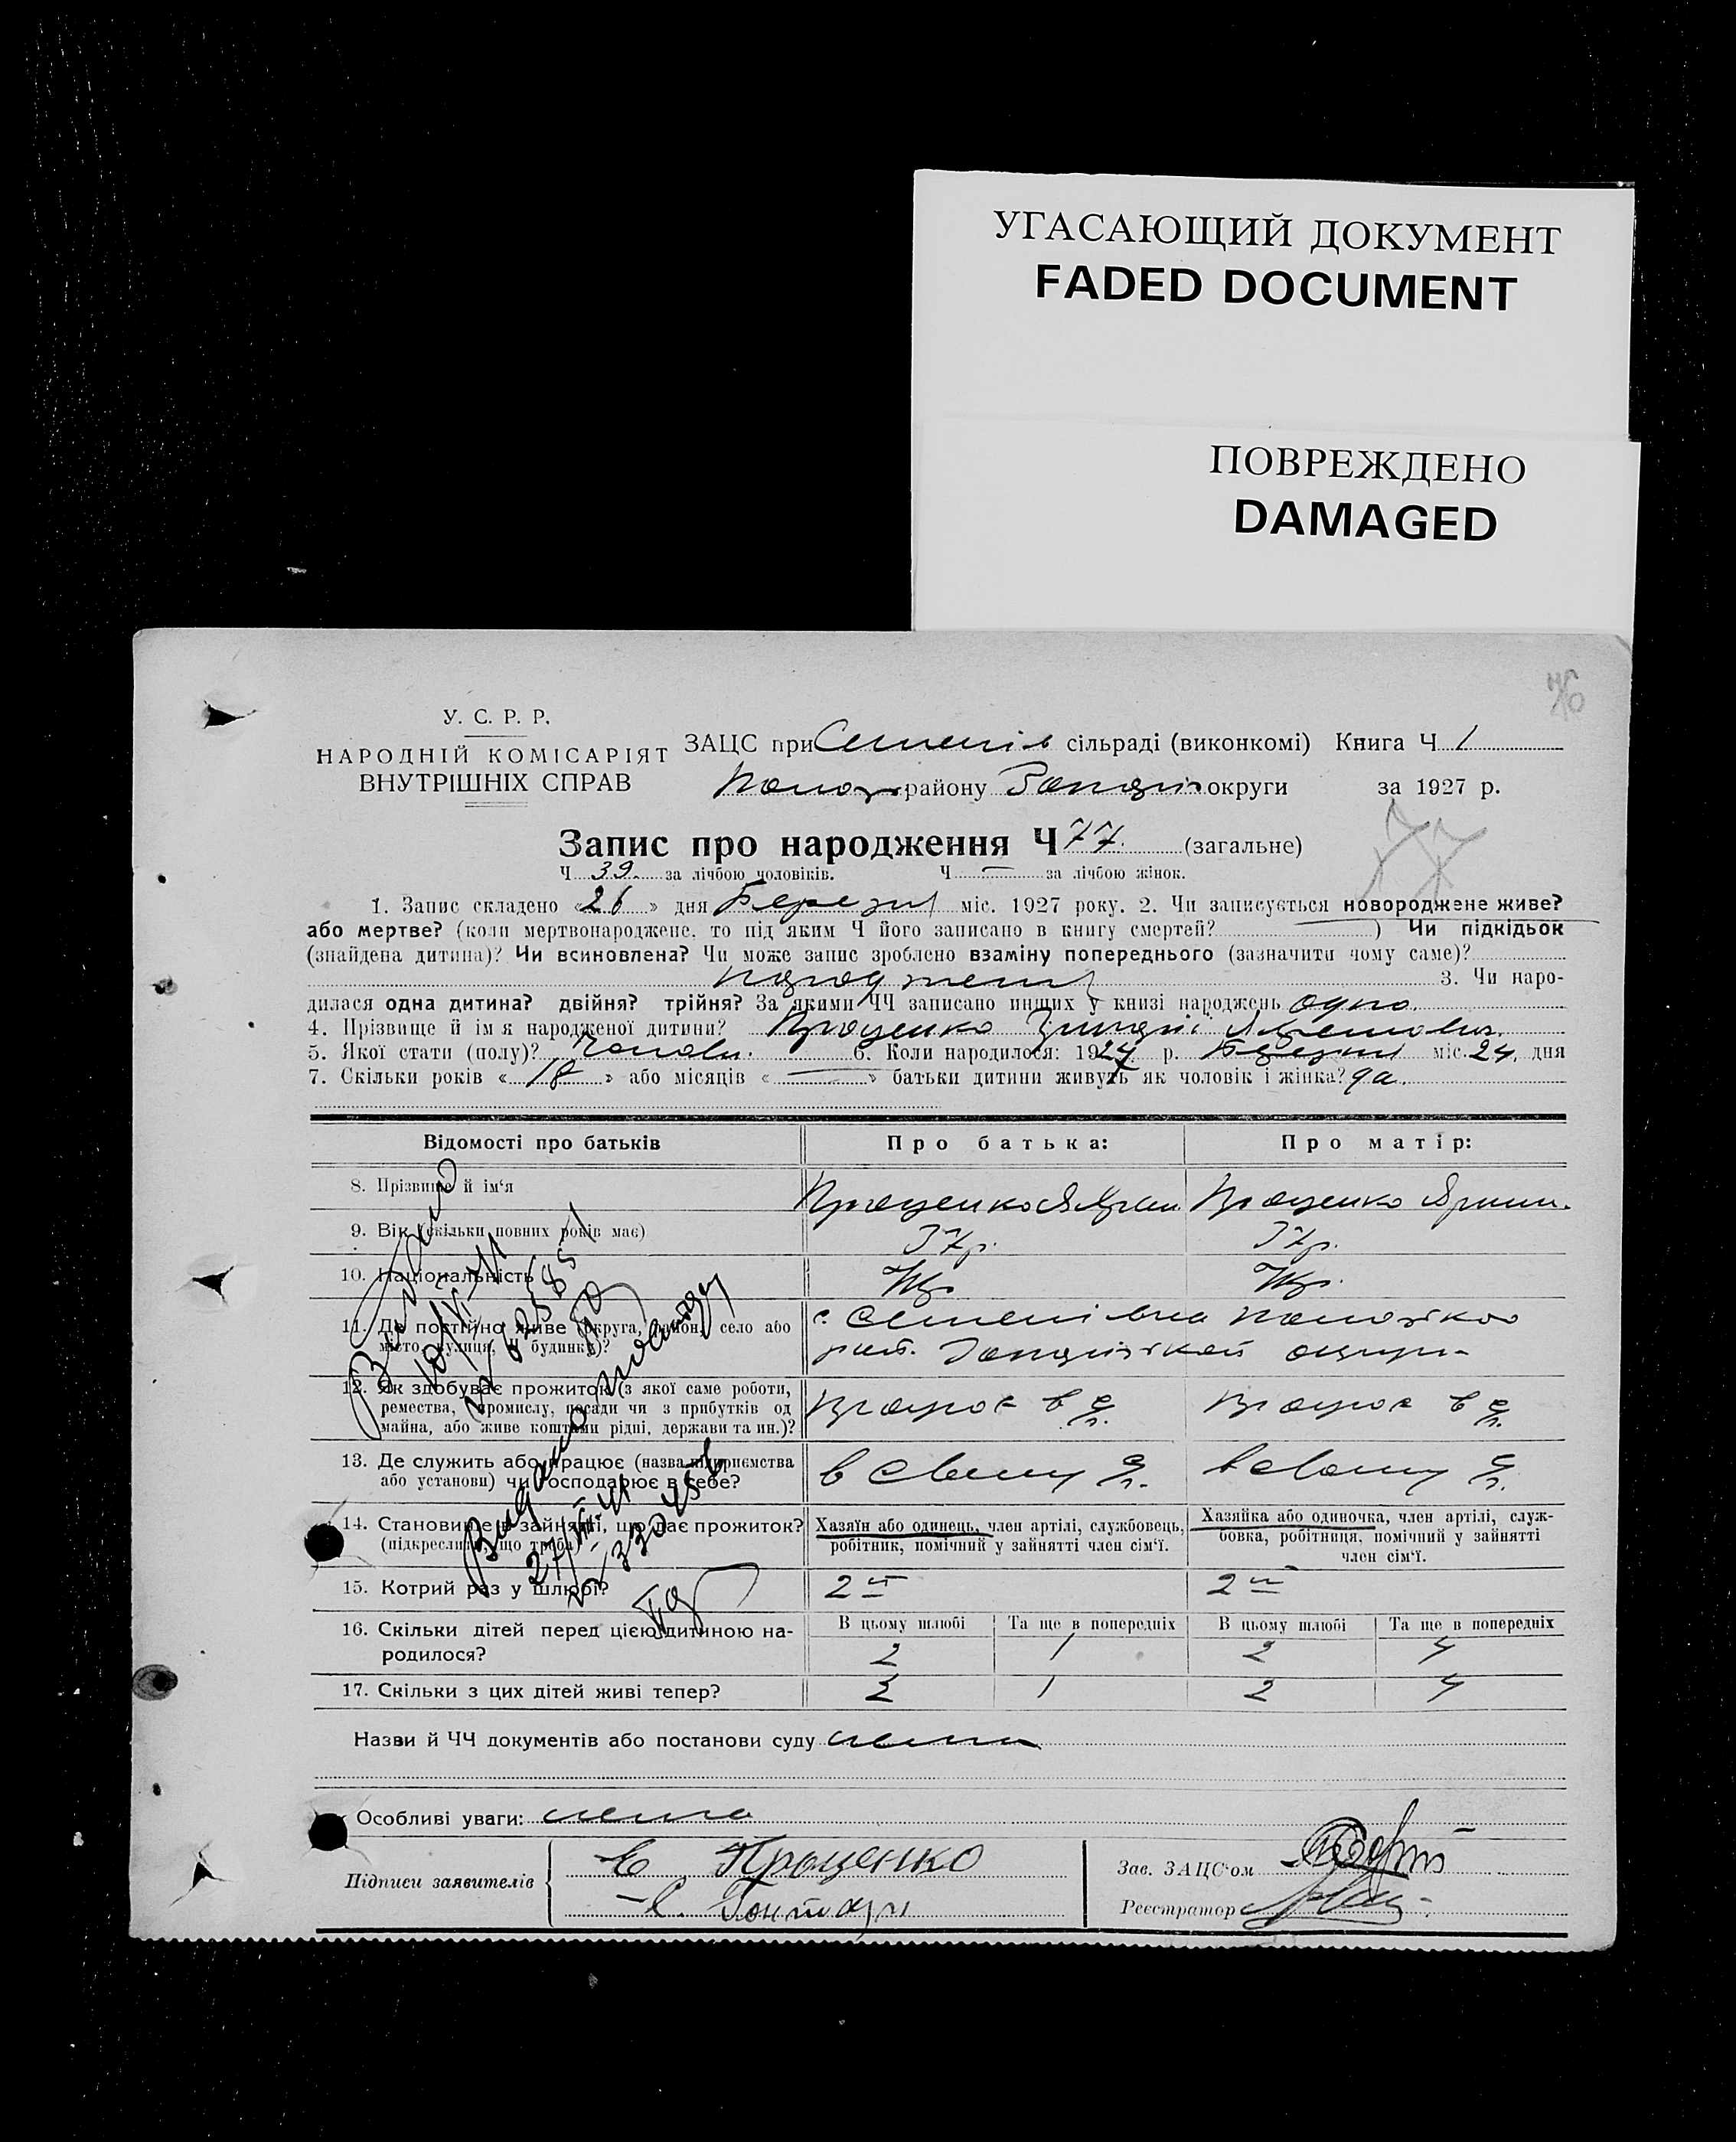 УГАСАЮЩИЙ ДОКУМЕНТ
FADED DOCUMENT
ПОВРЕЖДЕНО
DAMAGED
76
У. С. Р. Р.
НАРОДНІЙ КОМІСАРІЯТ
ВНУТРІШНІХ СПРАВ
ЗАЦС при Семенів сільраді (виконкомі) Книга Ч 1
району округи за 1927 р.
Запис про народження Ч 77. (загальне)
77
Ч 39. за лічбою чоловіків. Ч — за лічбою жінок.
1. Запис складено «26» дня Березня міс. 1927 року. 2. Чи записується новороджене живе?
або мертве? (коли мертвонароджене, то під яким Ч його записано в книгу смертей? ) Чи підкідьок
(знайдена дитина)? Чи всиновлена? Чи може запис зроблено взаміну попереднього (зазначити чому саме)?
3. Чи наро-
дилася одна дитина? двійня? трійня? За якими ЧЧ записано инших у книзі народжень одно.
4. Прізвище й ім я народженої дитини? Проценко
5. Якої стати (полу)? Чолові. 6. Коли народилося: 1927 р. Березня міс. 24, дня
7. Скільки років «18» або місяців «—» батьки дитини живуть як чоловік і жінка? да.
Відомості про батьків
Про батька:
Про матір:
8. Прізвище й ім'я
Проценко
Проценко
9. Вік (скільки повних років має)
37р.
37р.
10. Національність
Укр
Укр.
11. Де постійно живе (округа, район, село або
місто, вулиця, Ч будинку)?
с. Семенівка
12. Як здобуває прожиток (з якої саме роботи,
ремества, промислу, посади чи з прибутків од
майна, або живе коштами рідні, держави та ин.)?
13. Де служить або працює (назва підприємства
або установи) чи господарює в себе?
в своему
в своему
14. Становище в зайнятті, що дає прожиток?
(підкреслити, що треба)
Хазяїн або одинець, член артілі, службовець,
робітник, помічний у зайнятті член сім'ї.
Хазяйка або одиночка, член артілі, служ-
бовка, робітниця, помічний у зайнятті
член сім'ї.
15. Котрий раз у шлюбі?
2й
2й
16. Скільки дітей перед цією дитиною на-
родилося?
В цьому шлюбі Та ще в попередніх В цьому шлюбі Та ще в попередніх
2 1 2 4
17. Скільки з цих дітей живі тепер?
2 1 2 4
Назви й ЧЧ документів або постанови суду нема
Особливі уваги: нема
Підписи заявителів
Проценко
Гонтарь
Зав. ЗАЦС'ом
Реєстратор